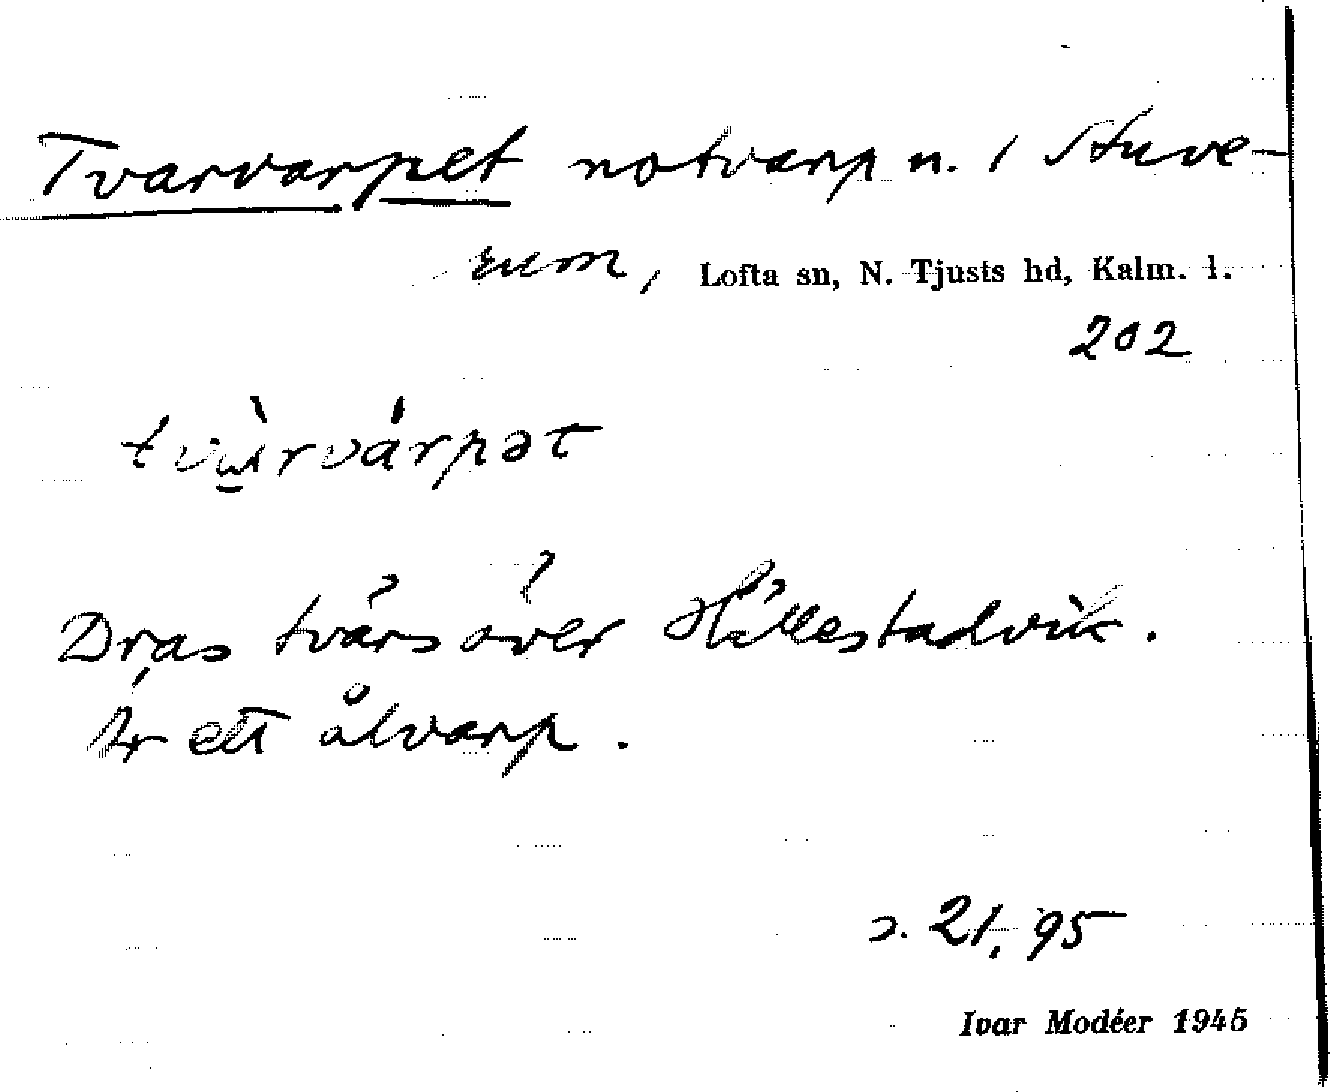 Tvarvarpet notvarp n. / Stuve-
rum, Lofta sn, N. Tjusts hd, Kalm. l.
202
Dras tvärs över Hillestadvik.
Är ett ålvarp.
s. 21, 95
Ivar Modéer 1945